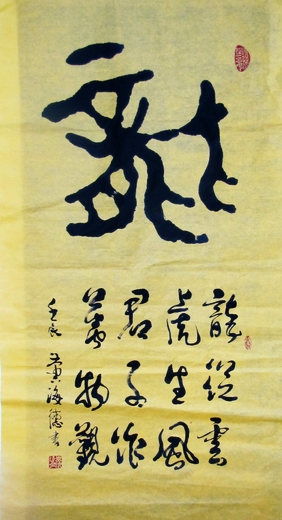 龍
龍從雲
虎生風
君子作
萬物觀
壬辰 黄海德書